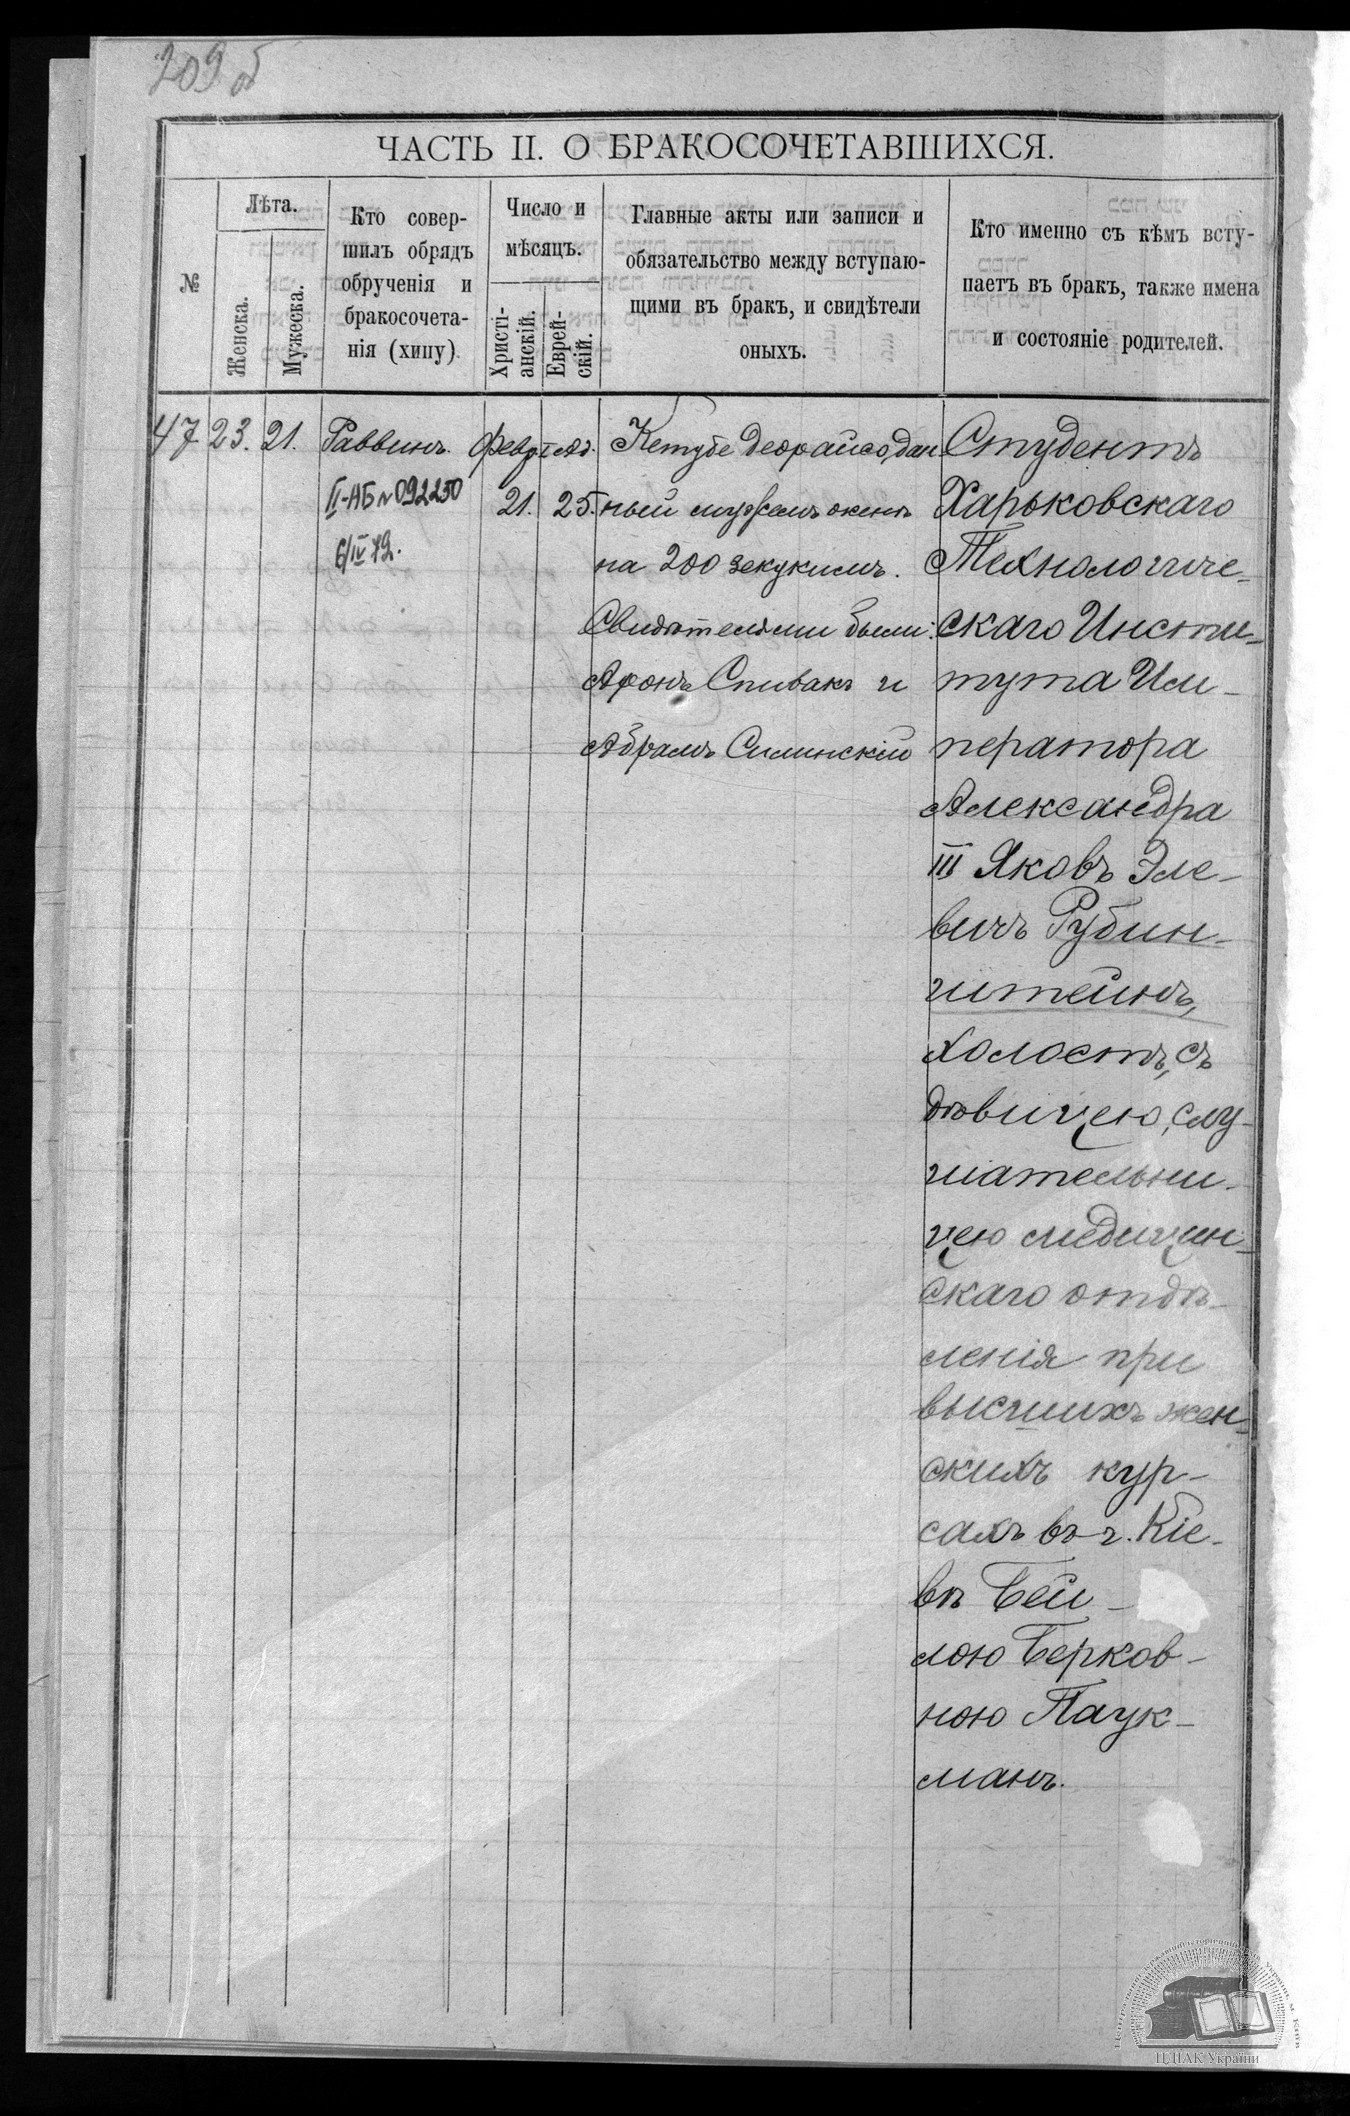 209 об
ЧАСТЬ II. О БРАКОСОЧЕТАВШИХСЯ.
№
Лѣта.
Женска.
Мужеска.
Кто совер-
шилъ обрядъ
обрученія и
бракосочета-
нія (хипу)
Число и
мѣсяцъ.
Христі-
анскій.
Еврей-
скій.
Главные акты или записи и
обязательство между вступаю-
щими въ бракъ, и свидѣтели
оныхъ.
Кто именно съ кѣмъ всту-
паетъ въ бракъ, также имена
и состояніе родителей.
47 23. 21. Раввинъ. Февр. I Ад.
II-АБ № 092250
6/IV 72.
21. 25.
Кетубе деорайсо, дан-
ный мужемъ женѣ
на 200 зекукимъ.
Свидѣтелями были:
Аронъ Спивакъ и
Абрамъ Силинскій
Студентъ
Харьковскаго
Технологиче-
скаго Инсти-
тута Им-
ператора
Александра
III Яковъ Эле-
вичъ Рубин-
штейнъ,
холостъ, съ
дѣвицею, слу-
шательни-
цею медицин-
скаго отдѣ-
ленія при
высшихъ жен-
скихъ кур-
сахъ въ г. Кіе-
вѣ Бей-
лою Берков-
ною Паук-
манъ.
ЦДІАК України